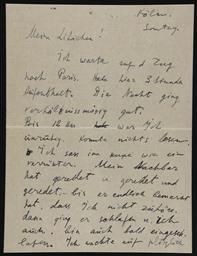 Köln.
Sonntag.
Mein Liebchen!
Ich warte auf d Zug
nach Paris. Habe hier 3 Stunde
Aufenthalt. Die Nacht ging
verhältnissmässig gut.
Bis 12 Uhr war Ich
einruhig. Konnte nichts lesen.
Ich sass im wie ein
verrückter. Mein Nachbar
hat geredet u geredet und
geredet - bis er endlich bemerkt
hat, dass Ich nicht zuhöre.
dann ging er schlafen u. Ich
auch. bin auch bald eingesch-
lafen. Ich auf